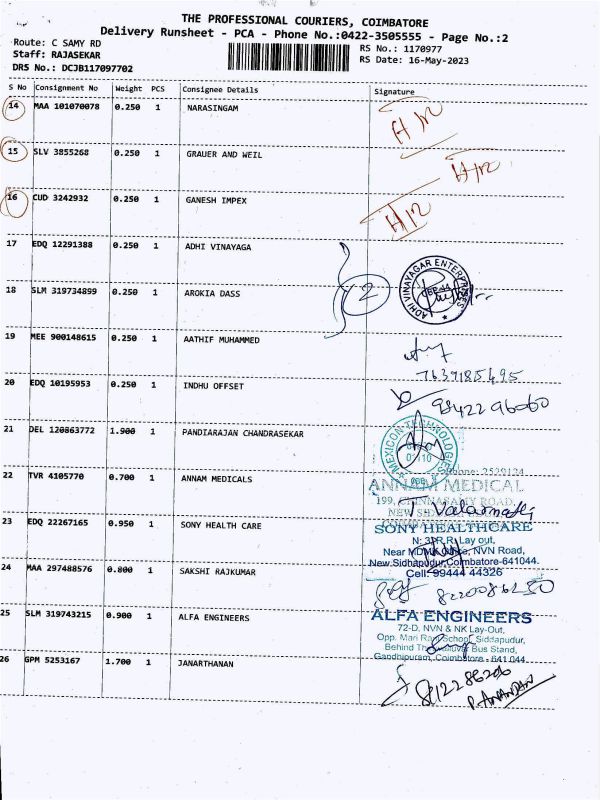 THE PROFESSIONAL COURIERS, COIMBATORE
Delivery Runsheet - PCA - Phone No.:0422-3505555 - Page No.:2
Route: C SAMY RD
RS No.: 1170977
Staff: RAJASEKAR
RS Date: 16-May-2023
DRS No.: DCJB117097702
S No Consignment No Weight PCS Consignee Details Signature
14 MAA 101070078 0.250 1 NARASINGAM
15 SLV 3855268 0.250 1 GRAUER AND WEIL
16 CUD 3242932 0.250 1 GANESH IMPEX
17 EDQ 12291388 0.250 1 ADHI VINAYAGA
2
ADHI VINAYAGAR ENTERPRISES
18 SLM 319734899 0.250 1 AROKIA DASS
19 MEE 900148615 0.250 1 AATHIF MUHAMMED
7639185495
20 EDQ 10195953 0.250 1 INDHU OFFSET
9842296060
21 DEL 120863772 1.900 1 PANDIARAJAN CHANDRASEKAR
MEXICON TECHNOLOGIES
22 TVR 4105770 0.700 1 ANNAM MEDICALS
Phone: 2520124
ANNAM MEDICAL
199, CHINNASAMY ROAD,
23 EDQ 22267165 0.950 1 SONY HEALTH CARE
SONY HEALTHCARE
Lay out,
Near NVN Road,
New Sidhapudur, Coimbatore-641044.
Cell: 99444 44326
24 MAA 297488576 0.800 1 SAKSHI RAJKUMAR
25 SLM 319743215 0.900 1 ALFA ENGINEERS
ALFA ENGINEERS
72-D, NVN & NK Lay-Out,
Opp. Mari School, Siddapudur,
Behind Bus Stand,
Gandhipuram, Coimbatore - 641 044
26 GPM 5253167 1.700 1 JANARTHANAN
8112286206
P. ANANDAN